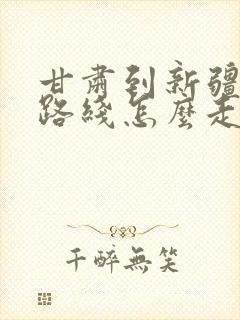 甘肅到新疆
路綫怎麼走
千醉無笑